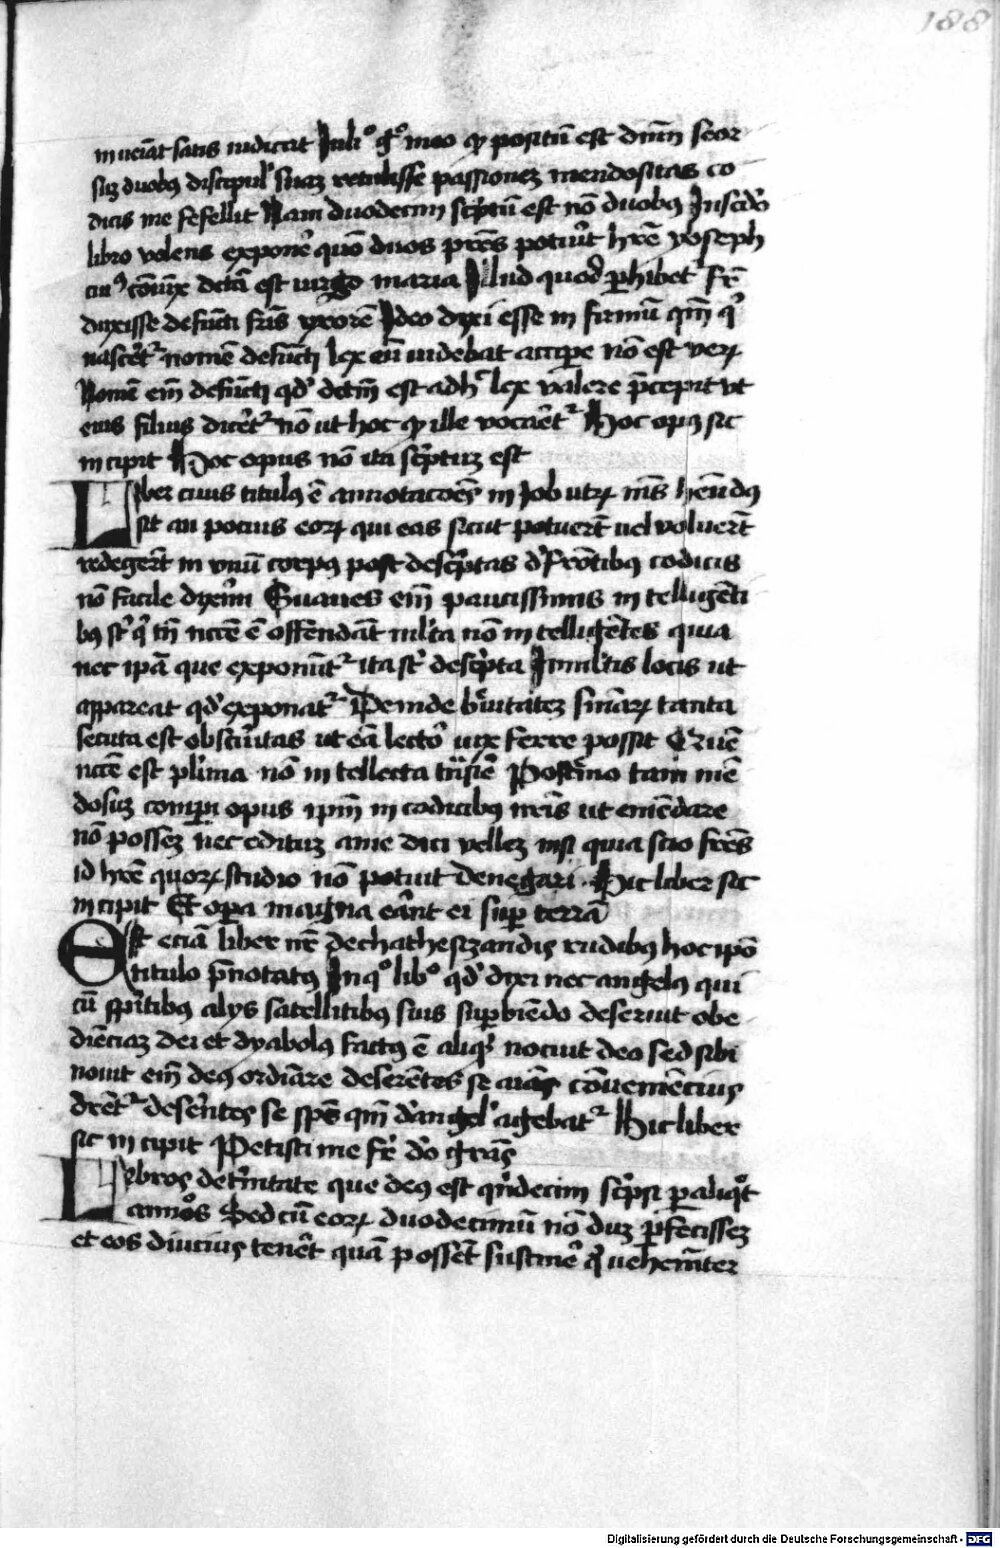 188
inueniat satis indicat In lib° g° meo qꝫ positū est dn̄m seor
suꝫ duobꝰ discipul' suaꝫ retulisse passioneꝫ mendositas co
dicis me fefellit Nam duodecim sc̄ptū est nō duobꝰ In scd̓o
libro volens expone᷑ quō duos pr̄es potuit h̄re yoseph
cuiꝰ cōiūx dc̄ā est uirgo maria Illud quod ꝑhibet᷑ fr̄
duxisse defuncti fr̄is vxorē Ideo dixi esse in firmū qm̄ q'
nascēt᷑ nomē defuncti lex eū iudebat accipe nō est veꝝ
Nomē em̄ defuncti qd' dc̄m̄ est adh' lex valere p̄cepit vt
eius filius dicēt᷑ nō ut hoc qꝫ ille vocaēt᷑ Hoc opꝰ sic
incipit Hoc opus nō ita sc̄ptuꝫ est
Liber cuius titulꝰ ē annotacōes in Job utꝝ mꝰs hn̄dꝰ
sit an pocius eoꝝ qui eas sicut potuer̄t uel voluer̄t
redeger̄t in vnū corpꝰ post desc̄ptas d' frōtibꝰ codicis
nō facile dixerim Suaues em̄ paucissimis in telligēti
bꝰ st̄ q' tn̄ nc̄c̄e ē offendāt ml'ta nō in telligētes quia
nec ip̄a que exponūt᷑ ita st̄ desc̄pta In ml'tis locis ut
appareat qd' exponat᷑ Deinde b̄uitateꝫ sn̄iaꝝ tanta
secuta est obscuritas ut eā lecto᷑ uix ferre possit Quē
nc̄c̄e est pl'ima nō in tellecta trāsire Postremo tam mē
dosuꝫ comꝑi opus ip̄m in codicibꝰ nr̄is ut emēdare
nō posseꝫ nec edituꝫ a me dici velleꝫ nisi quia scio fr̄es
id h̄re quoꝝ studio nō potuit denegari Hic liber sic
incipit Et oꝑa magna erant ei suꝑ terrā
Est eciā liber nr̄ de chathesizandis rudibꝰ hoc ip̄o
titulo p̄notatꝰ In q° lib° qd' dixi nec angelꝰ qui
cū sp̄itibꝰ alys satellitibꝰ suis suꝑbiēdo deseruit obe
diēciaꝫ dei et dyabolꝰ factꝰ ē aliqd' nocuit deo sed sibi
nouit em̄ deꝰ ordiāre deserētes se aīas cōuenienciꝰ
dr̄et᷑ deserētes se sp̄s qm̄ d' angel' agebat᷑ Hic liber
sic incipit Petisti me fr̄ d̓o grās
Libros de tr̄initate que deꝰ est q̄ndecim sc̄psi ꝑ aliq̄t
annos Sed cū eoꝝ duodecimū nō duꝫ ꝑfecisseꝫ
et eos diucius tenēt quā possēt sustinē q' vehemēter
Digitalisierung gefördert durch die Deutsche Forschungsgemeinschaft - DFG